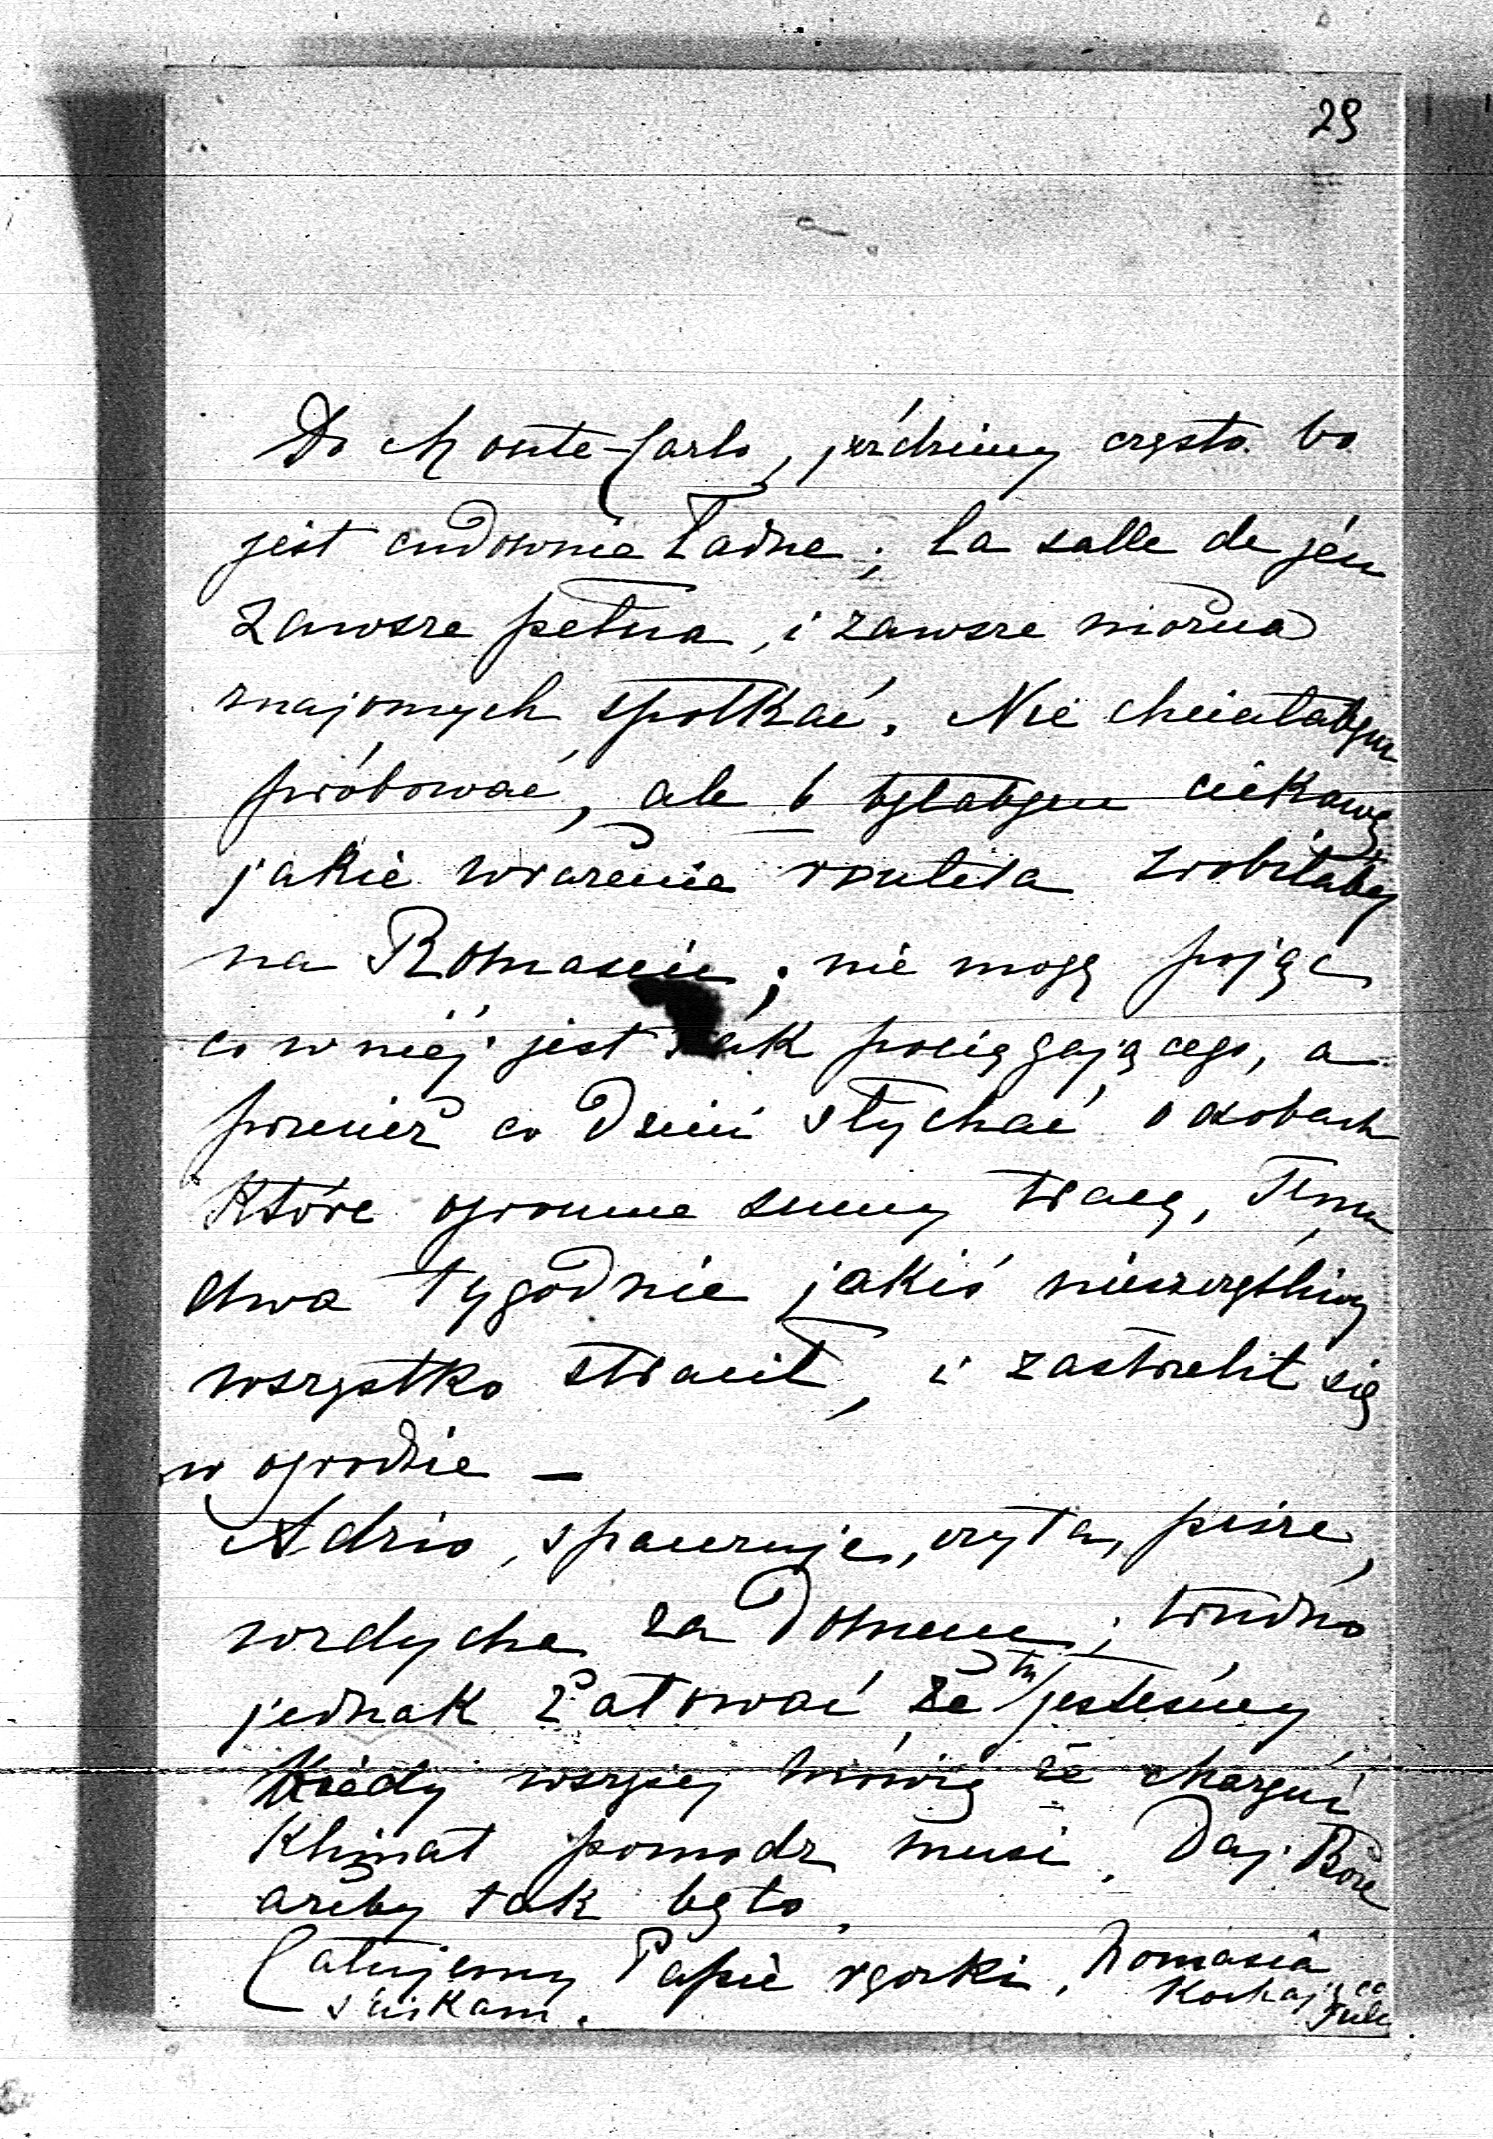 29
Do Monte-Carlo, jeździmy często bo
jest cudownie ładne; la salle de jéu
zawsze pełna, i zawsze można
znajomych spotkać. Nie chciałabym
próbować, ale b byłabym ciekawą
jakie wrażenie ruleta zrobiłaby
na Romasiu; nie mogę pojąć
co w niéj jest tak pociągającego, a
przecież co dzień słychać o osobach
które ogromne sumy tracą, temu
dwa tygodnie jakiś nieszczęśliwy
wszystko stracił, i zastrzelił się
w ogrodzie —
Adzio, spaceruje, czyta, pisze,
wzdycha za domem; trudno
jednak żałować że tu jesteśmy
kiédy wszyscy mówią że
klimat pomódz musi. Daj Boże
ażeby tak było.
Całujemy Papie rączki, Romasia
ściskam. Kochająca